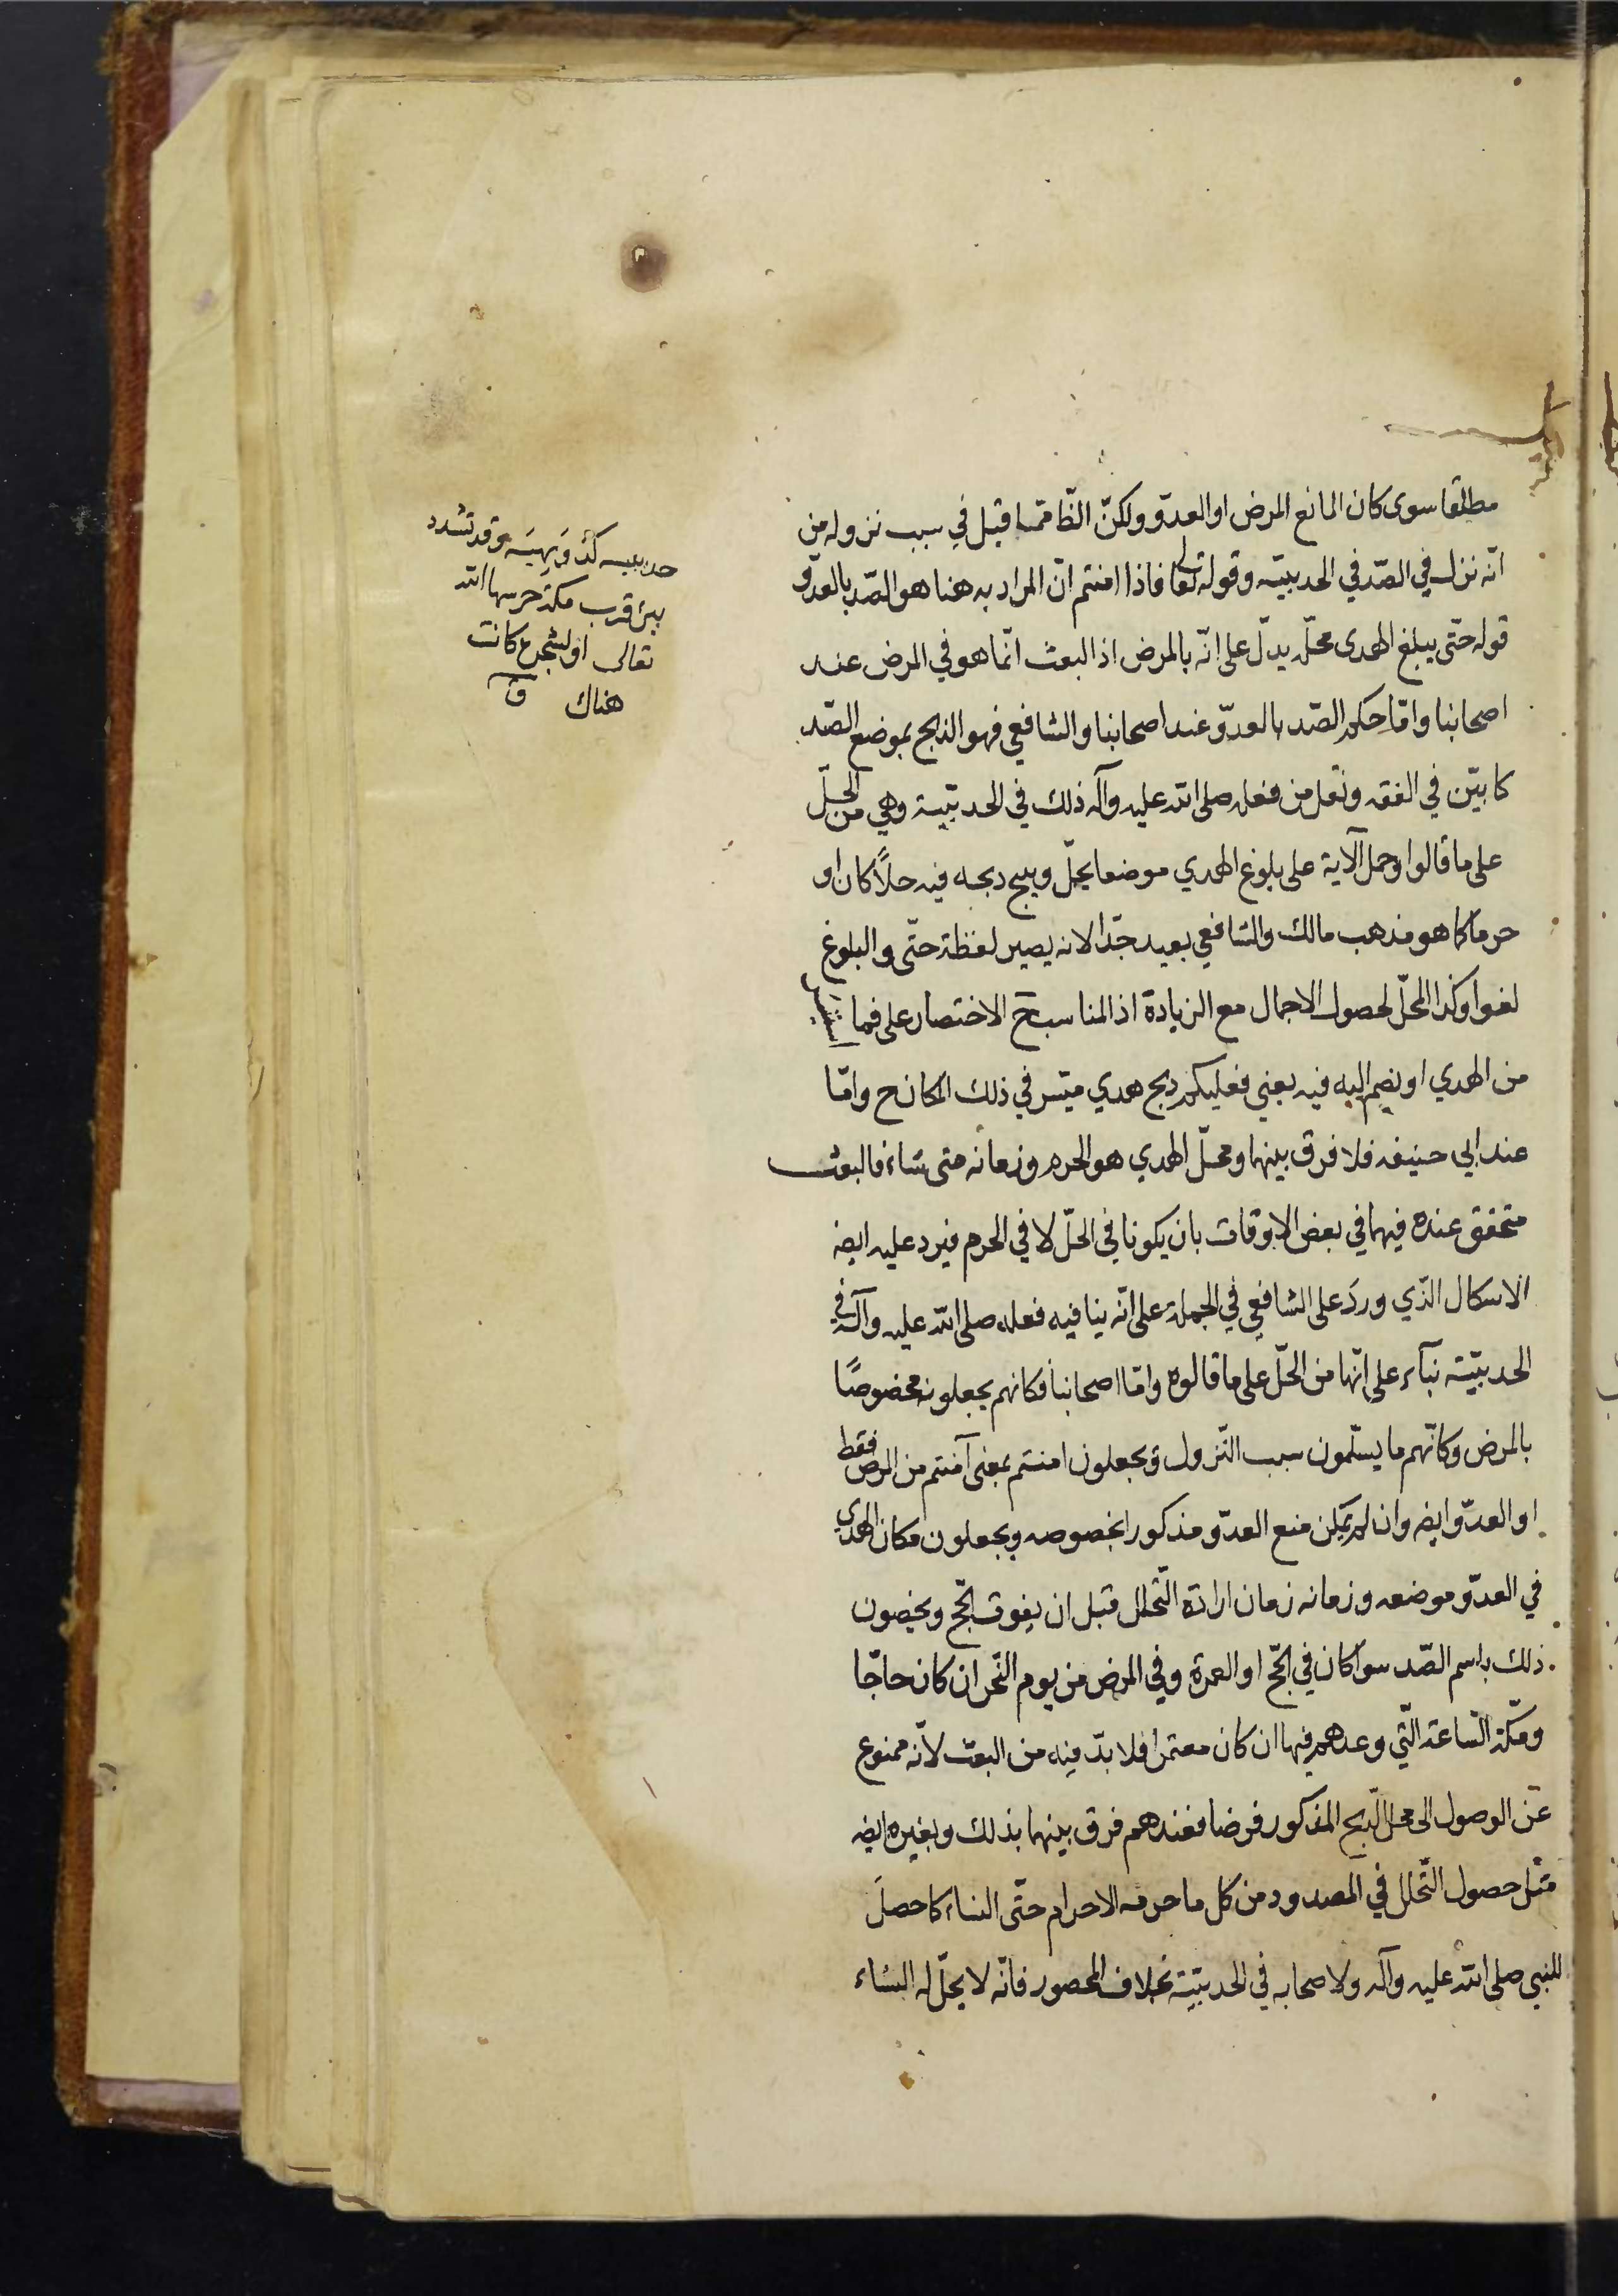 مطلقا سوى كان المانع المرض او العدوّ ولكنّ الظّا ممّا قيل في سبب نزوله من
انّه نزل في الصّد في الحديبيّه وقوله تعالى فاذا امنتم انّ المراد به هنا هو الصّد بالعدوّ و
قوله حتّى يبلغ الهدى محلّه يدلّ على انّه بالمرض اذ البعث انّما هو في المرض عند
اصحابنا وامّا حكم الصّد بالعدوّ عند اصحابنا والشافعي فهو الذبح بموضع الصّد
كما بيّن في الفقه ونقل من فعله صلى الله عليه وآله ذلك في الحديبّية وهي من الحلّ
على ما قالوا وحمل الآية على بلوغ الهدي موضعا يحلّ ويبيح ذبحه فيه حلاًّ كان او
حرما كما هو مذهب مالك والشافعي بعيد جّدا لانه يصير لفظة حتّى والبلوغ
لغوا وكذا المحلّ لحصول الاجمال مع الزيادة اذ المناسب ح الاختصار على فما استيسر
من الهدي او يضم اليه فيه يعني فعليكم ذبح هدي متيسر في ذلك المكان ح وامّا
عند ابي حنيفه فلا فرق بينهما ومحلّ الهدي هو الحرم وزمانه متى شاء فالبعث
متحقق عنده فيهما في بعض الاوقات بان يكونا في الحلّ لا في الحرم فيرد عليه ايضه
الاشكال الذّي وردَ على الشافعي في الجملة على انّه ينافيه فعله صلى الله عليه وآله في
الحديبيّته بنآء على انّها من الحلّ على ما قالوه وامّا اصحابنا فكانهم يجعلونه مخصوصًا
بالمرض وكانّهم ما يسلّمون سبب النّزول ويجعلون امنتم بمعنى آمنتم من المرض فقط
او العدوّ ايضه وان لم يكن منع العدوّ مذكورا بخصوصه ويجعلون مكان الهدي
في العدوّ موضعه وزمانه زمان ارادة التّحلل قبل ان يفوت الحّج ويخصون
ذلك باسم الصّد سوا كان في الحّج او العمرة وفي المرض من يوم النّحر ان كان حاجّا
ومكّة السّاعة الّتي وعدهم فيها ان كان معتمرا فلا بدّ فيه من البعث لانّه ممنوع
عن الوصول الى محل الذّبح المذكور فرضا فعندهم فرق بينهما بذلك وبغيره ايضه
مثل حصول التّحلل في المصدود من كل ما حرمه الاحرام حتّى النساء كما حصلَ
للنبي صلى الله عليه وآله ولاصحابه في الحديبّيّة بخلاف المحصور فانّه لا يحلّ له النساء
حديبيه كدُوَيهيَه وقد تشدد
بئر قرب مكة حرسها الله
تعالى او لشجرة كانت
هناك ق